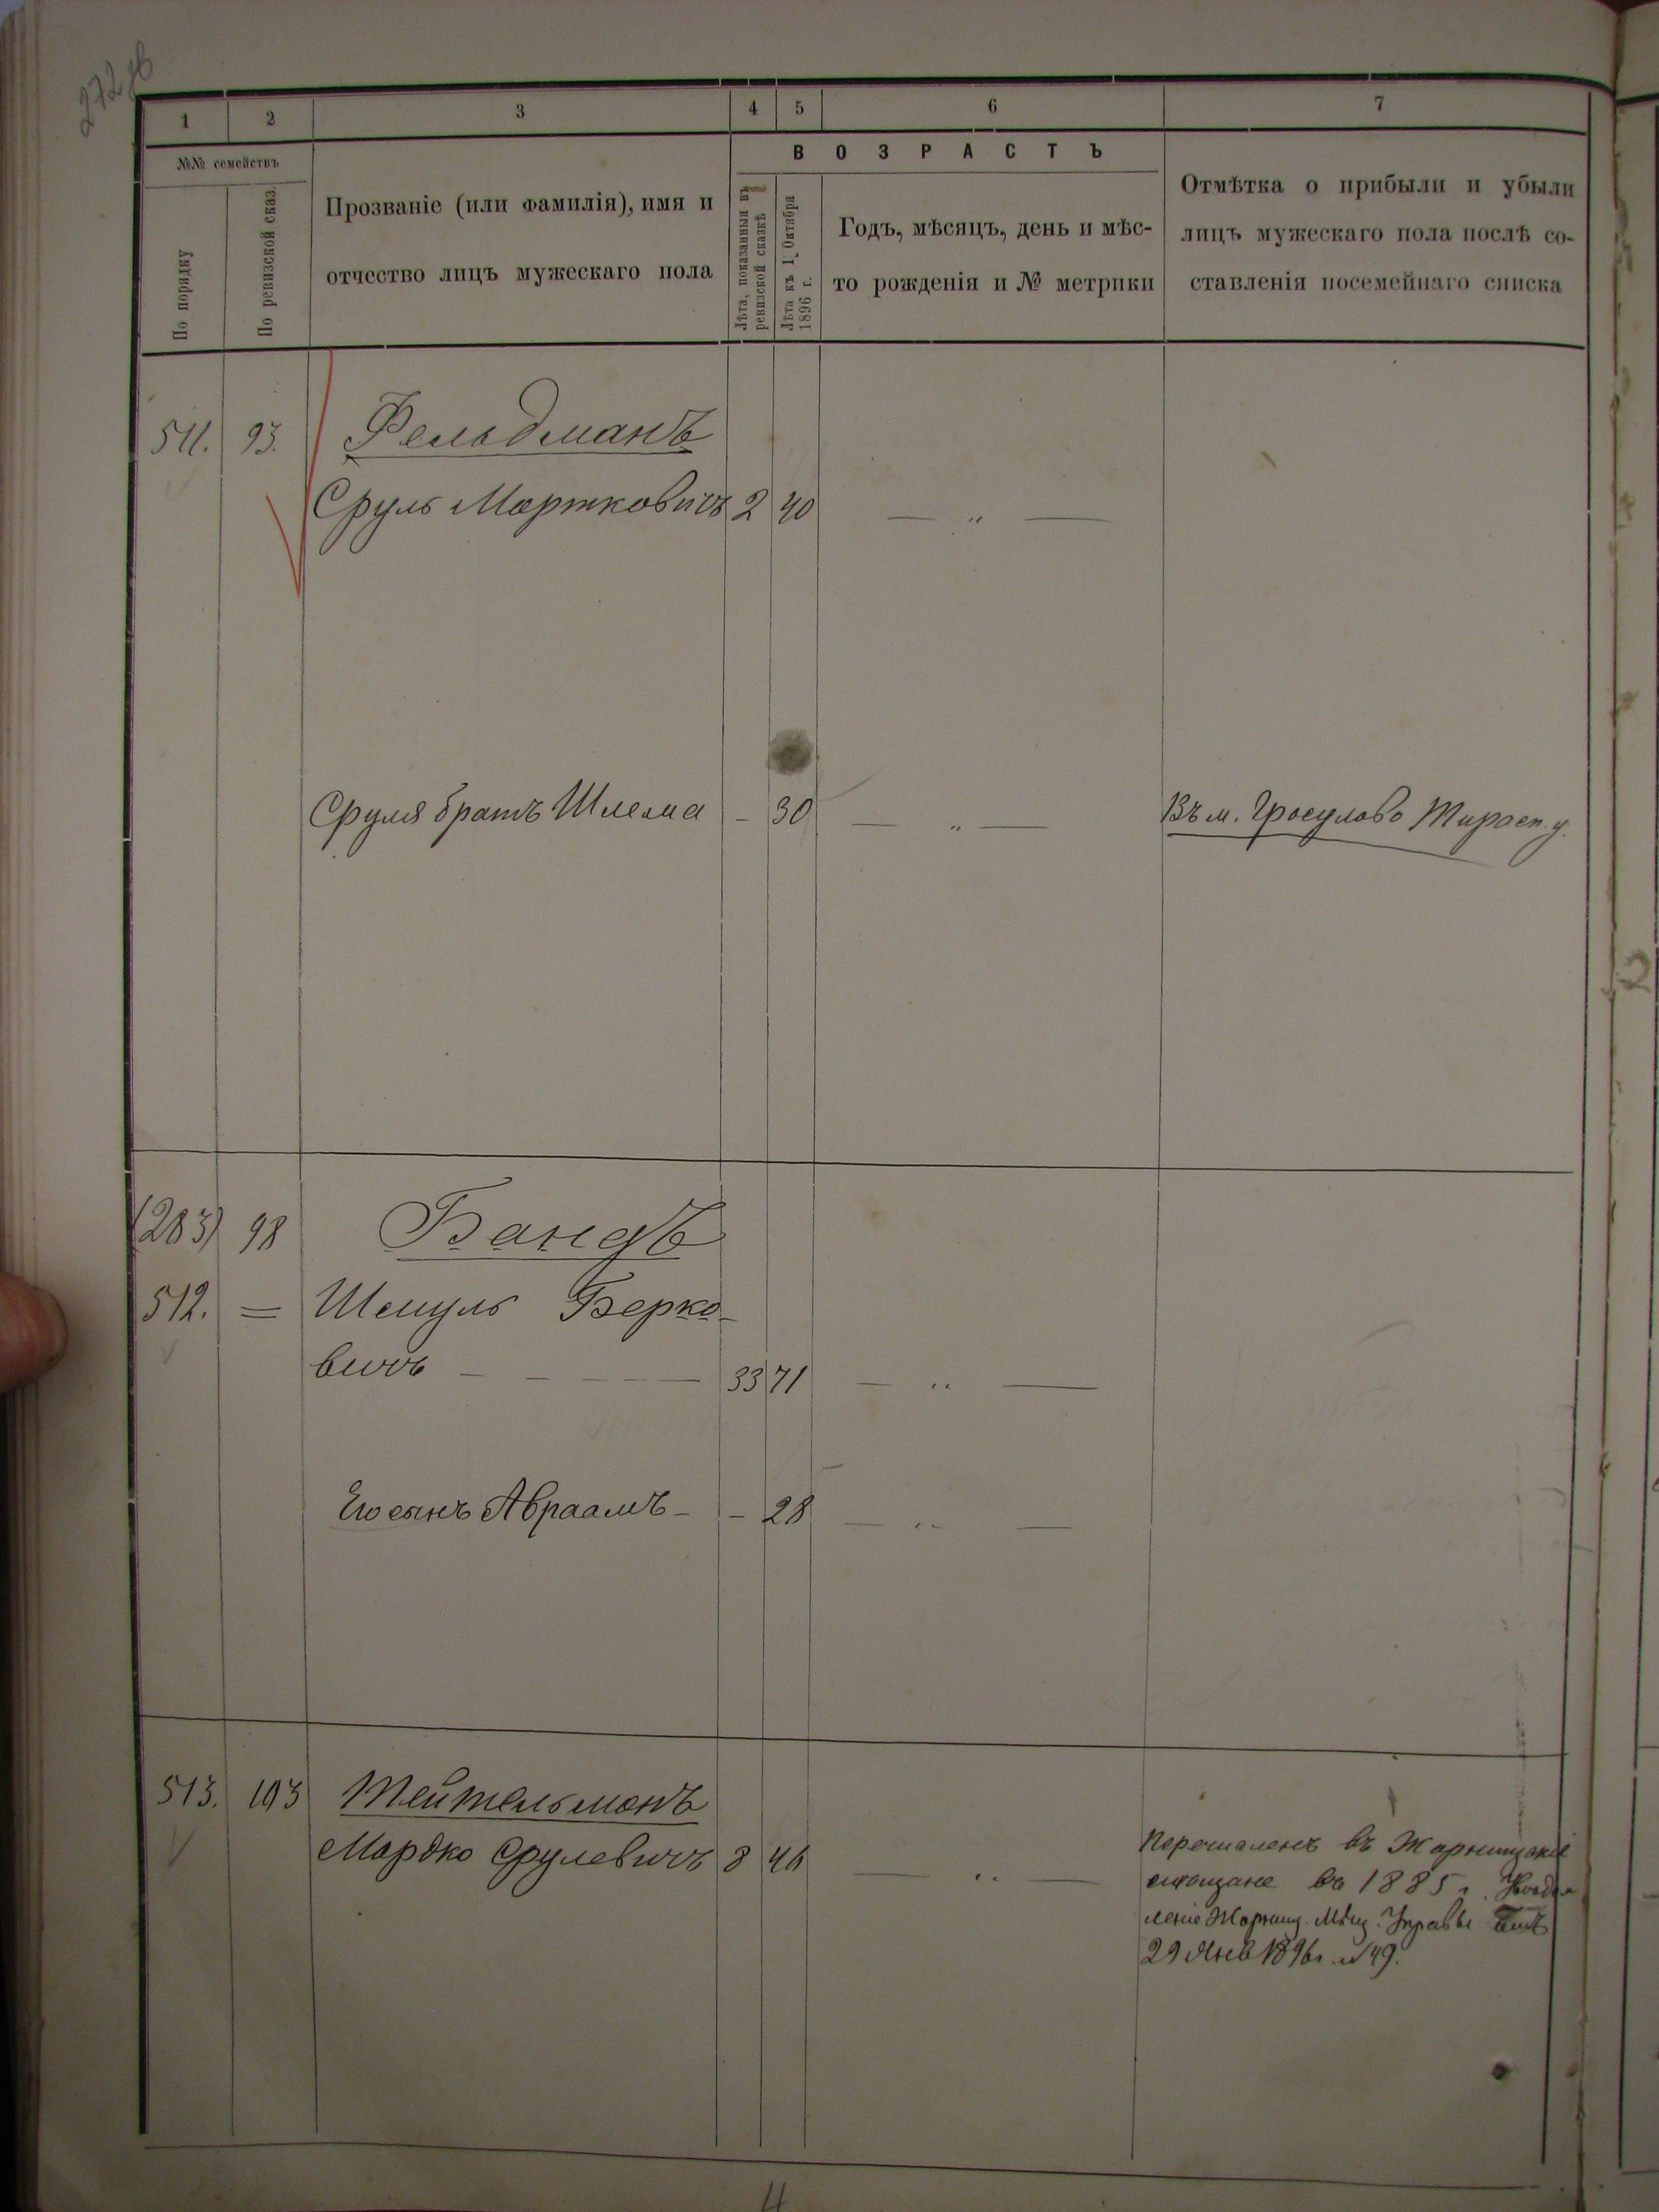 272 об
1 2 3 4 5 6 7
№№ семействъ
По порядку
По ревизской сказ.
Прозваніе (или фамилія), имя и
отчество лицъ мужескаго пола
ВОЗРАСТЪ
Лѣта, показанныя въ
ревизской сказкѣ
Лѣта къ 1 Октября
1896 г.
Годъ, мѣсяцъ, день и мѣс-
то рожденія и № метрики
Отмѣтка о прибыли и убыли
лицъ мужескаго пола послѣ со-
ставленія посемейнаго списка
511. 93. Фельдманъ
Сруль Мортковичъ 2 40 — " —
Сруля братъ Шлема - 30 — " — Въ м. Гросулово Тирасп. у.
(283) 98 Бандъ
512. = Шмуль Берко-
вичъ - - - - - 33 71 — " —
Его сынъ Авраамъ - - 28 — " —
513. 103 Тейтельманъ
Мордко Срулевичъ 8 46 — " —
Перечисленъ въ Жорнищскіе
мѣщане въ 1885 г.
Жорнищ. Мѣщ. Управы
29 Янв 1896 г. № 49.
4